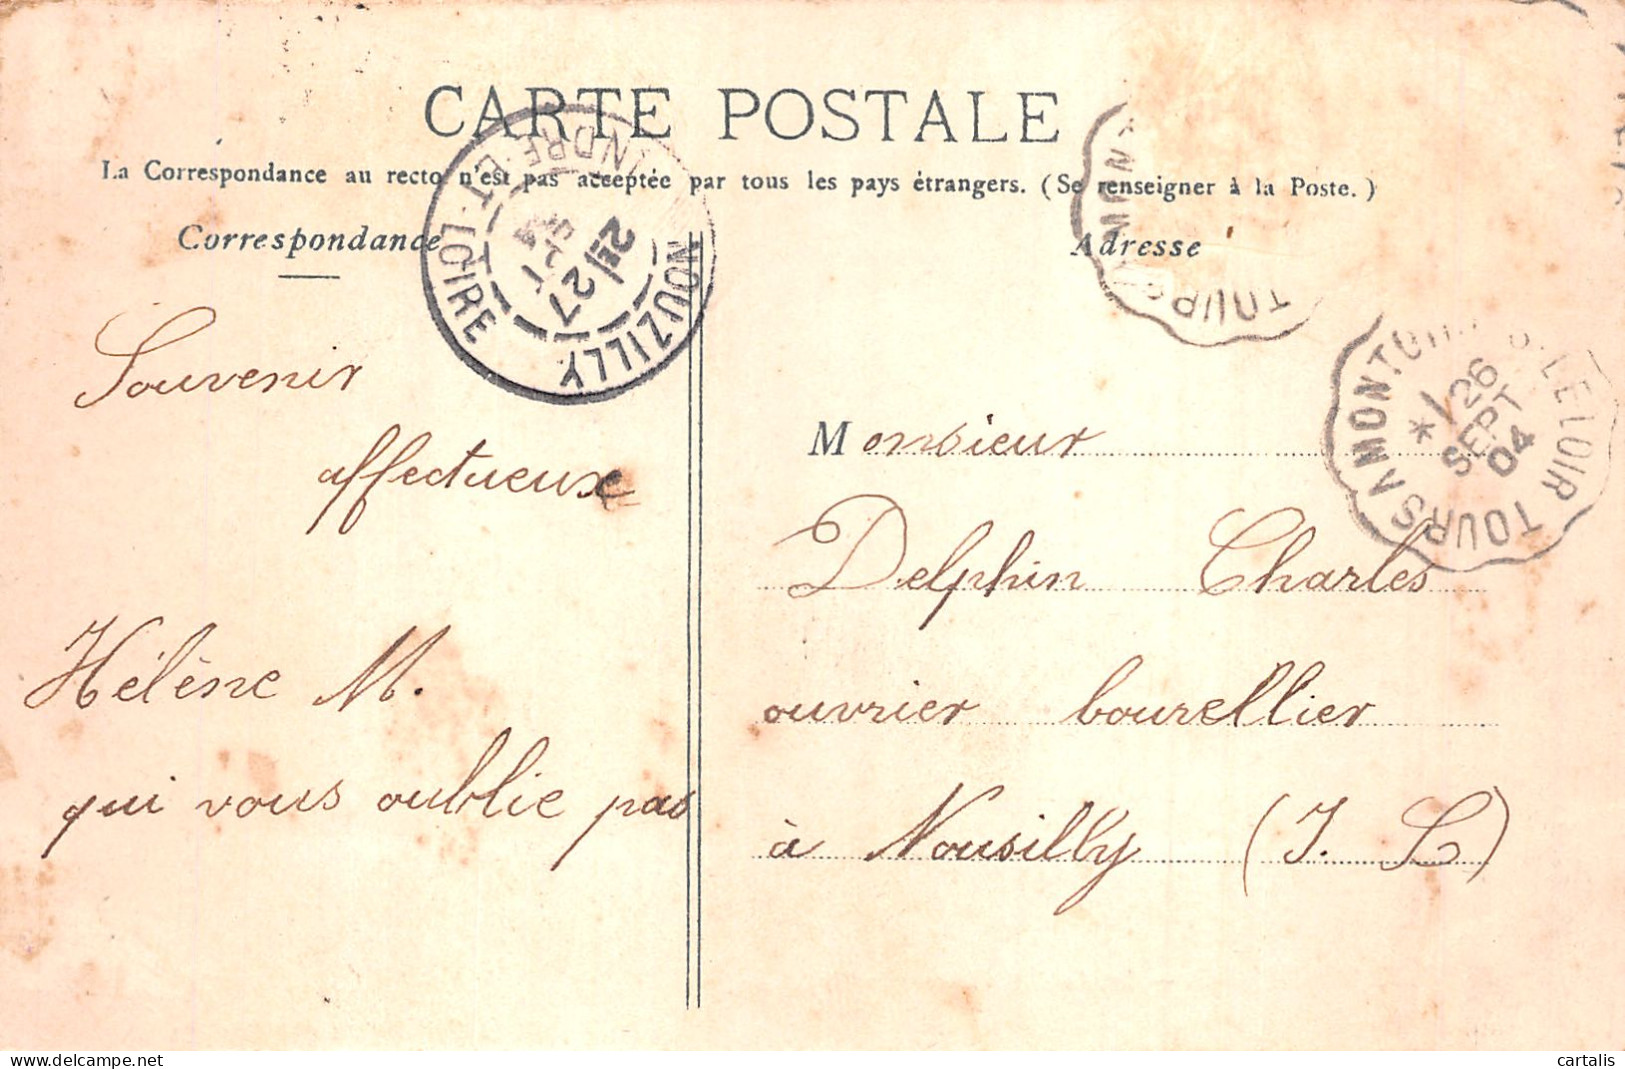 CARTE POSTALE
La Correspondance au recto n'est pas acceptée par tous les pays étrangers. (Se renseigner à la Poste.)
Correspondance
Adresse
Souvenir
affectueux
Hélène M.
qui vous oublie pas
Monsieur
Delphin Charles
ouvrier bourellier
à Nousilly (I. L)
NOUZILLY
INDRE-ET-LOIRE
2E/27
SEPT
TOURS A MONTOIRE S. LE LOIR
*/26
SEPT
04
TOURS A MONT
TOURS
www.delcampe.net
cartalis